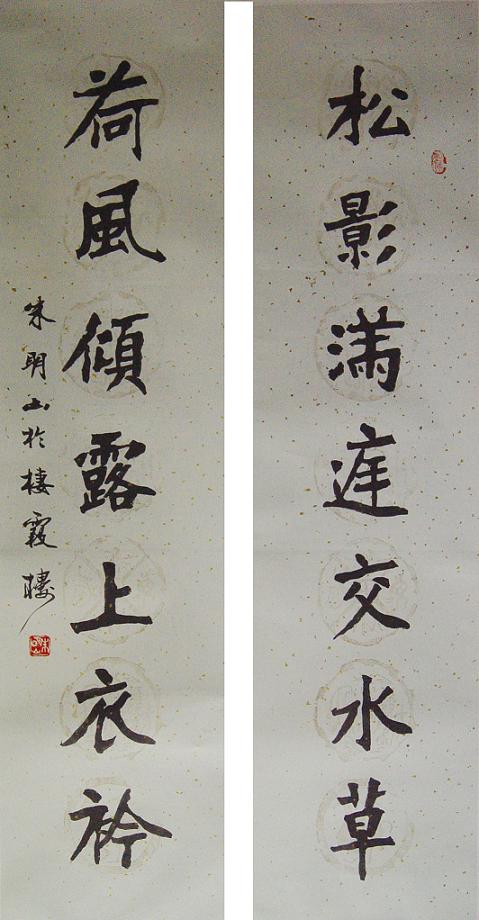 松影满庭交水草
荷風傾露上衣衿
朱明山於棲霞樓